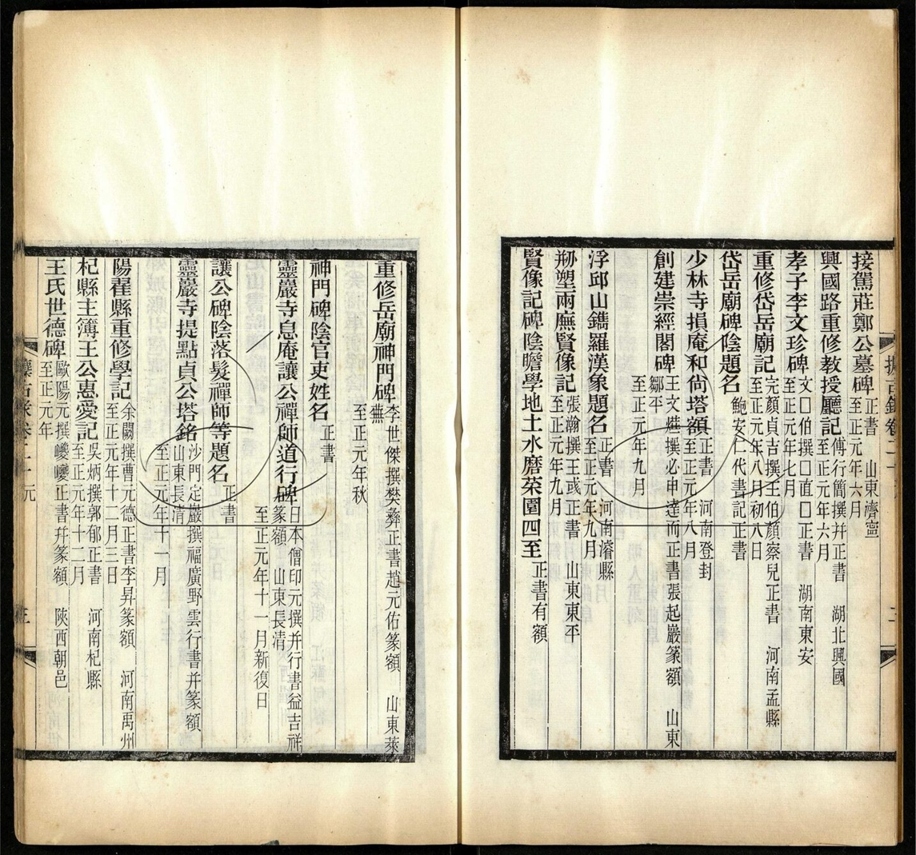 接駕莊鄭公墓碑 正書 山東濟寧 至正元年六月
興國路重修教授廳記 傅行簡撰并正書 湖北興國 至正元年六月
孝子李文珍碑 文□伯撰□直□正書 湖南東安 至正元年七月
重修岱岳廟記 完顏貞吉撰王伯顏察兒正書 河南孟縣 至正元年八月初八日
岱岳廟碑陰題名 鮑安仁代書記正書
少林寺損庵和尚塔額 正書 河南登封 至正元年八月
創建崇經閣碑 王文爗撰必申達而正書張起巖篆額 山東鄒平 至正元年九月
浮邱山鐫羅漢象題名 正書 河南濬縣 至正元年九月
剏塑兩廡賢像記 張瀚撰王彧正書 山東東平 至正元年九月
賢像記碑陰瞻學地土水磨菜園四至 正書有額
重修岳廟神門碑 李世傑撰樊彝正書趙元佑篆額 山東萊蕪 至正元年秋
神門碑陰官吏姓名 正書
靈巖寺息庵讓公禪師道行碑 日本僧印元撰并行書益吉祥篆額 山東長清 至正元年十一月新復日
讓公碑陰落髮禪師等題名 正書
靈巖寺提點貞公塔銘 沙門定巖撰福廣野雲行書并篆額 山東長清 至正元年十一月
陽翟縣重修學記 余闕撰曹元德正書李昇篆額 河南禹州 至正元年十二月三日
杞縣主簿王公惠愛記 吳炳撰郭郁正書 河南杞縣 至正元年十二月
王氏世德碑 歐陽元撰巙巙正書并篆額 陝西朝邑 至正元年